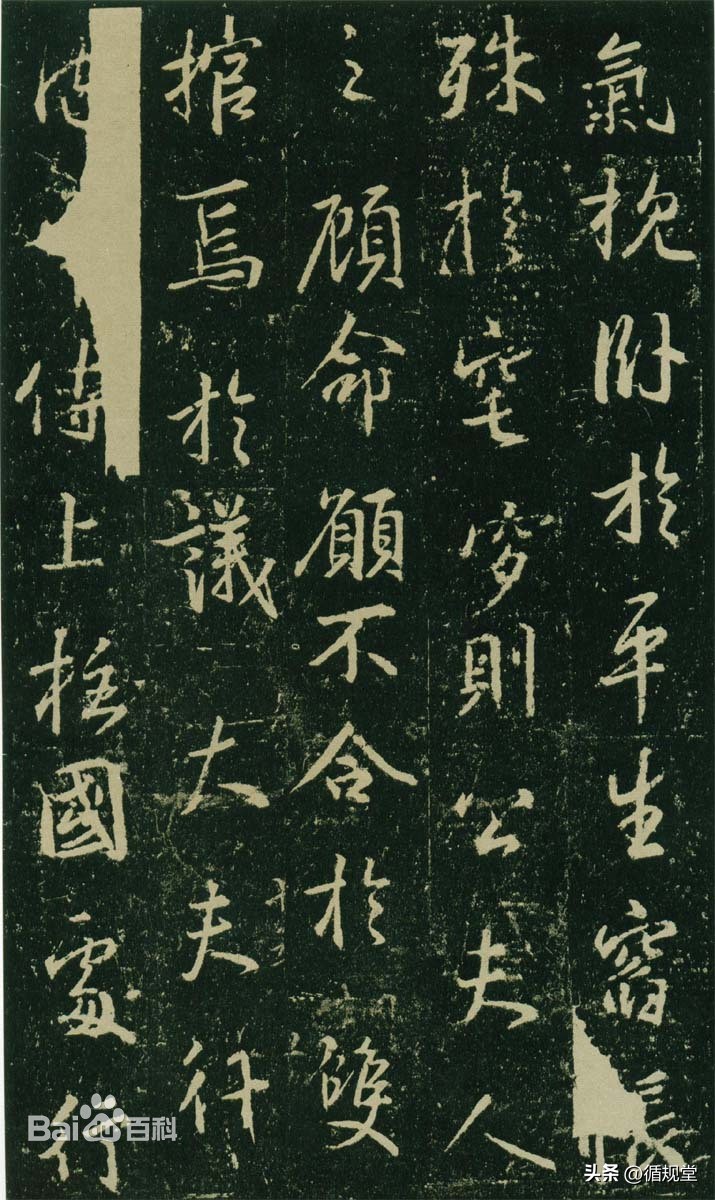 氣枕卧於平生窅長
殊於窀穸則公夫人
之顧命願不合於雙
棺焉於議大夫行
侍上柱國處行
Bai百科
头条 @循规堂